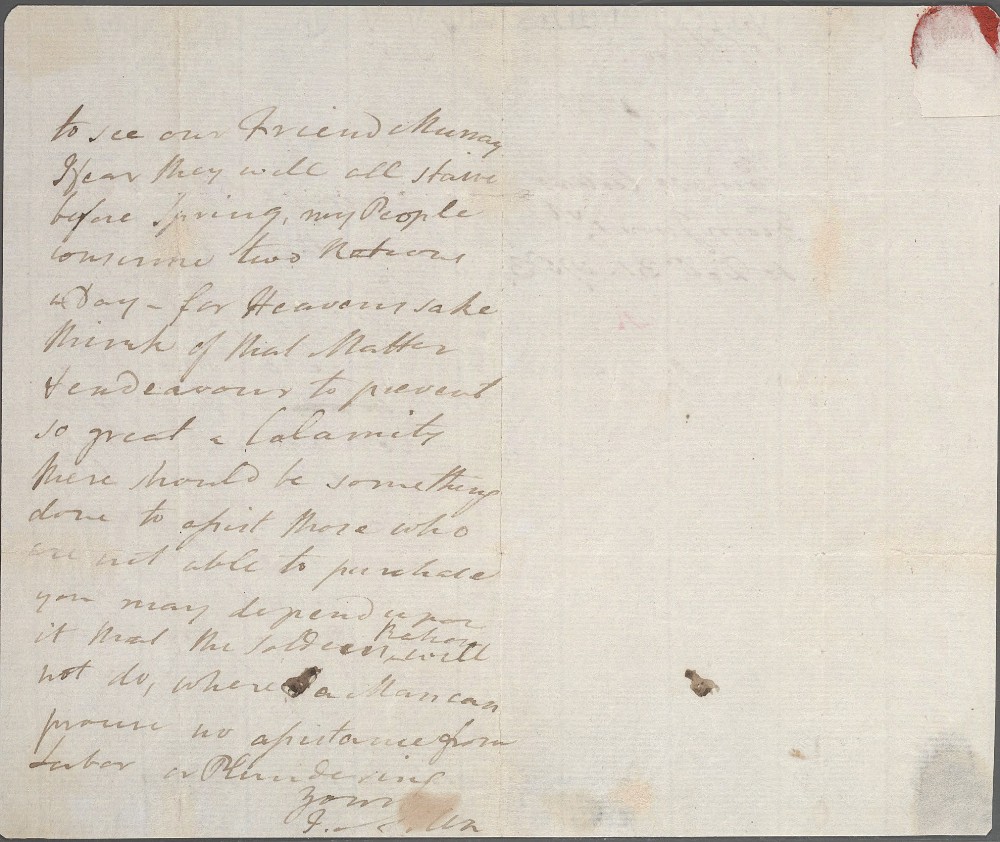 to see our Friend Murray
I fear they will all starve
before Spring, my People
consume two Rations
a Day - for Heavens sake
think of that Matter
& endeavour to prevent
so great a Calamity
there should be something
done to assist those who
are not able to purchase
you may depend upon
it that the Soldiers Ration will
not do, where a Man can
procure no assistance from
Labor or Plundering
Yours